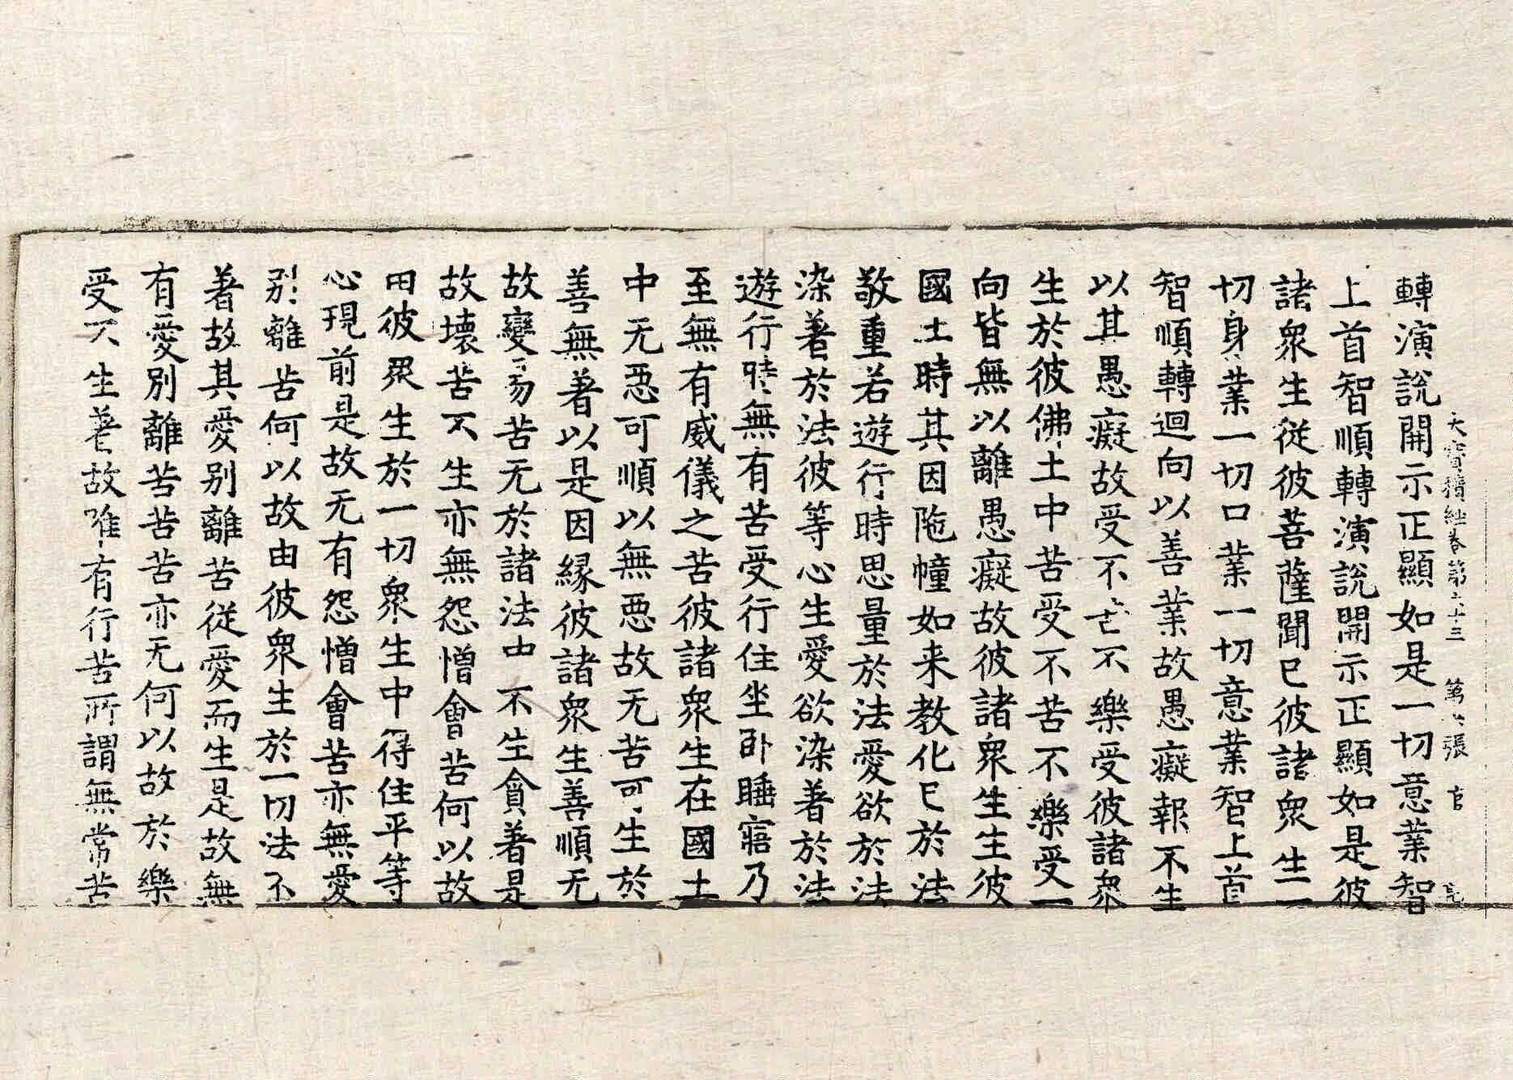 大寶積經卷第六十三　第六張　官
轉演說開示正顯如是一切意業智
上首智順轉演說開示正顯如是彼
諸衆生從彼菩薩聞已彼諸衆生一
切身業一切口業一切意業智上首
智順轉迴向以善業故愚癡報不生
以其愚癡故受不苦不樂受彼諸衆
生於彼佛土中苦受不苦不樂受一
向皆無以離愚癡故彼諸衆生生彼
國土時其因陁幢如来教化已於法
敬重若遊行時思量於法愛欲於法
染著於法彼等心生愛欲染著於法
遊行時無有苦受行住坐卧睡寤乃
至無有威儀之苦彼諸衆生在國土
中无惡可順以無惡故无苦可生於
善無著以是因緣彼諸衆生善順无
故變易苦无於諸法中不生貪著是
故壞苦不生亦無怨憎會苦何以故
由彼衆生於一切衆生中得住平等
心現前是故无有怨憎會苦亦無愛
別離苦何以故由彼衆生於一切法不
著故其愛別離苦從愛而生是故無
有愛別離苦苦苦亦无何以故於樂
受不生著故唯有行苦所謂無常苦